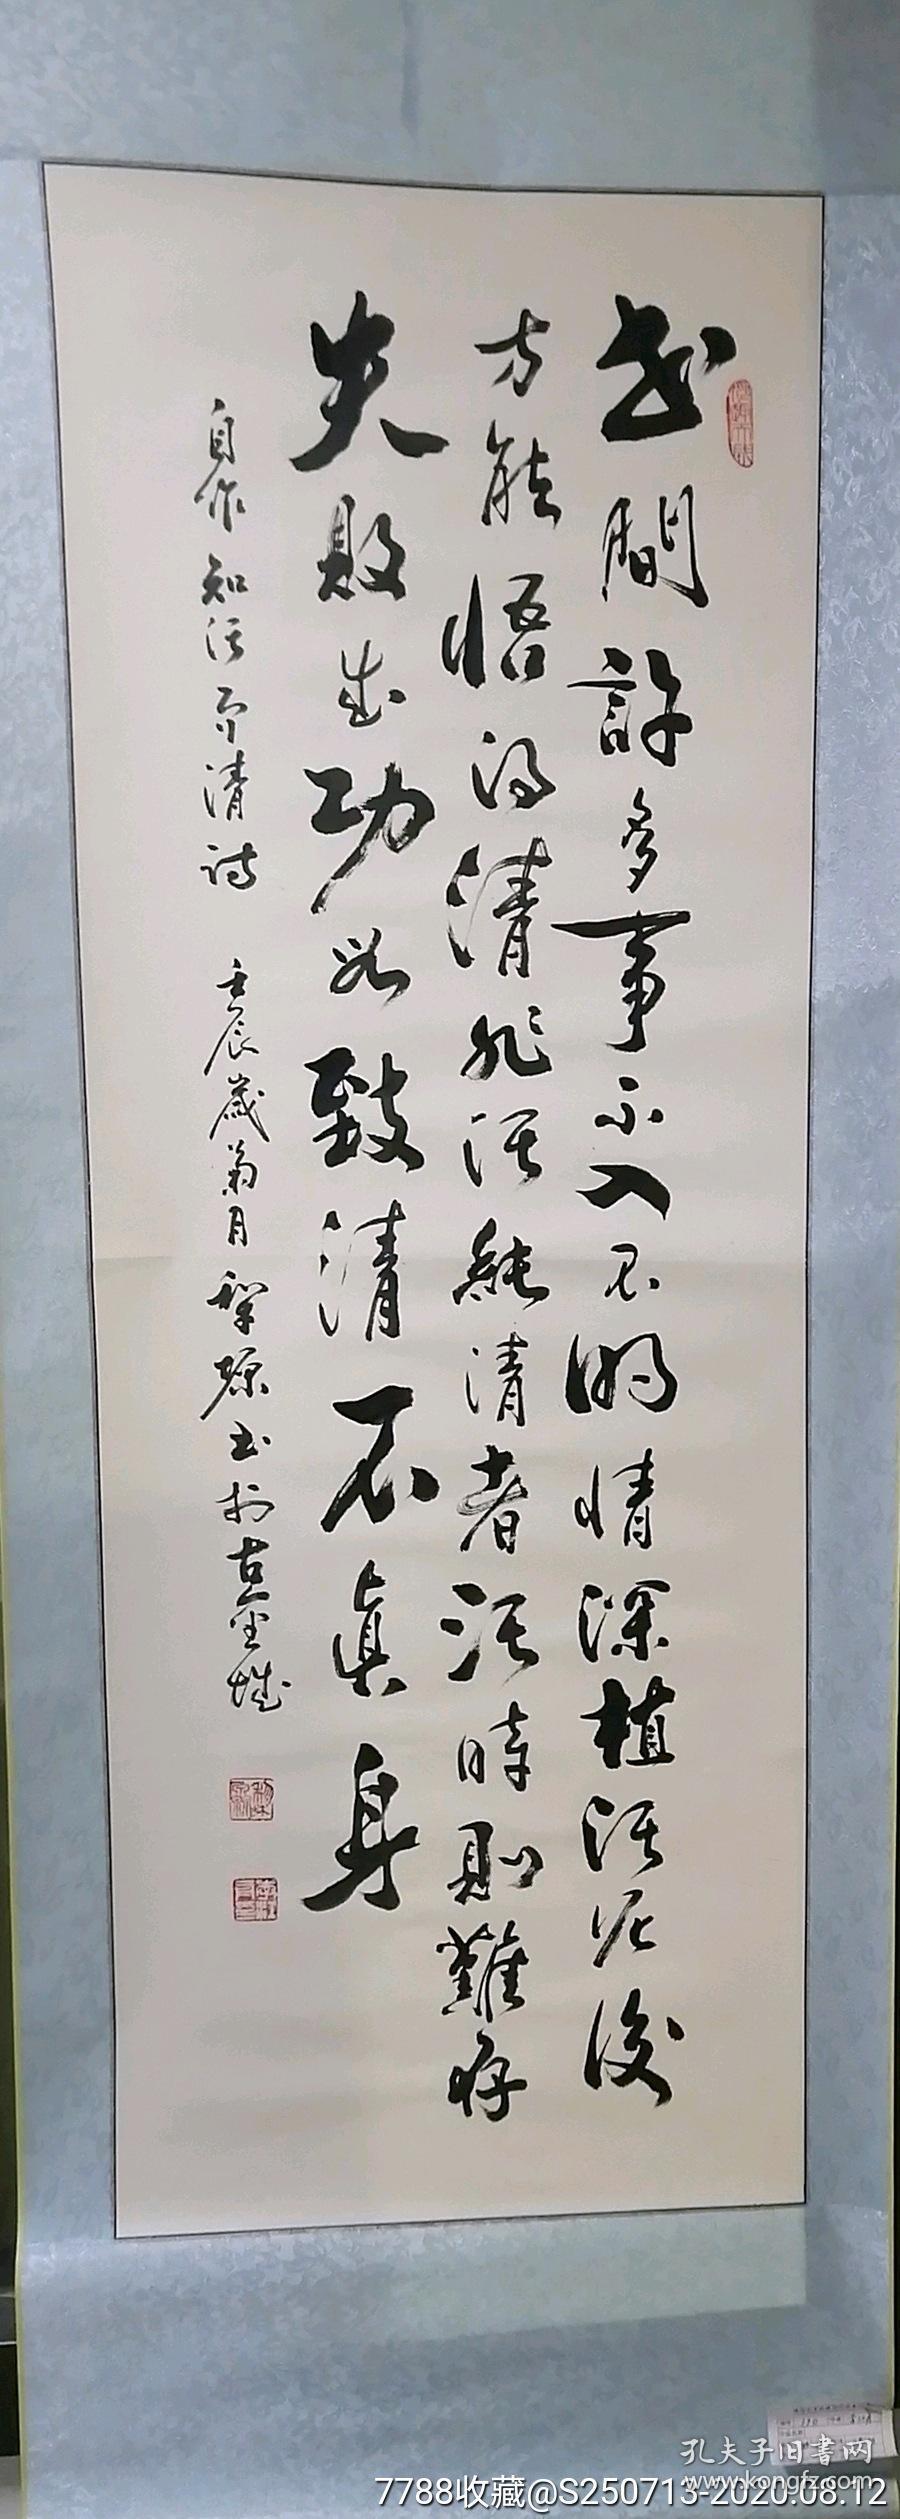 世間許多事不入不明情深植污泥後
方能悟得清非污純清者污時則難存
失敗出功名致清不真身
自作知污不清詩 壬辰歲菊月 犂源书於古金城
孔夫子旧書网
www.kongfz.com
7788收藏@S250713-2020.08.12